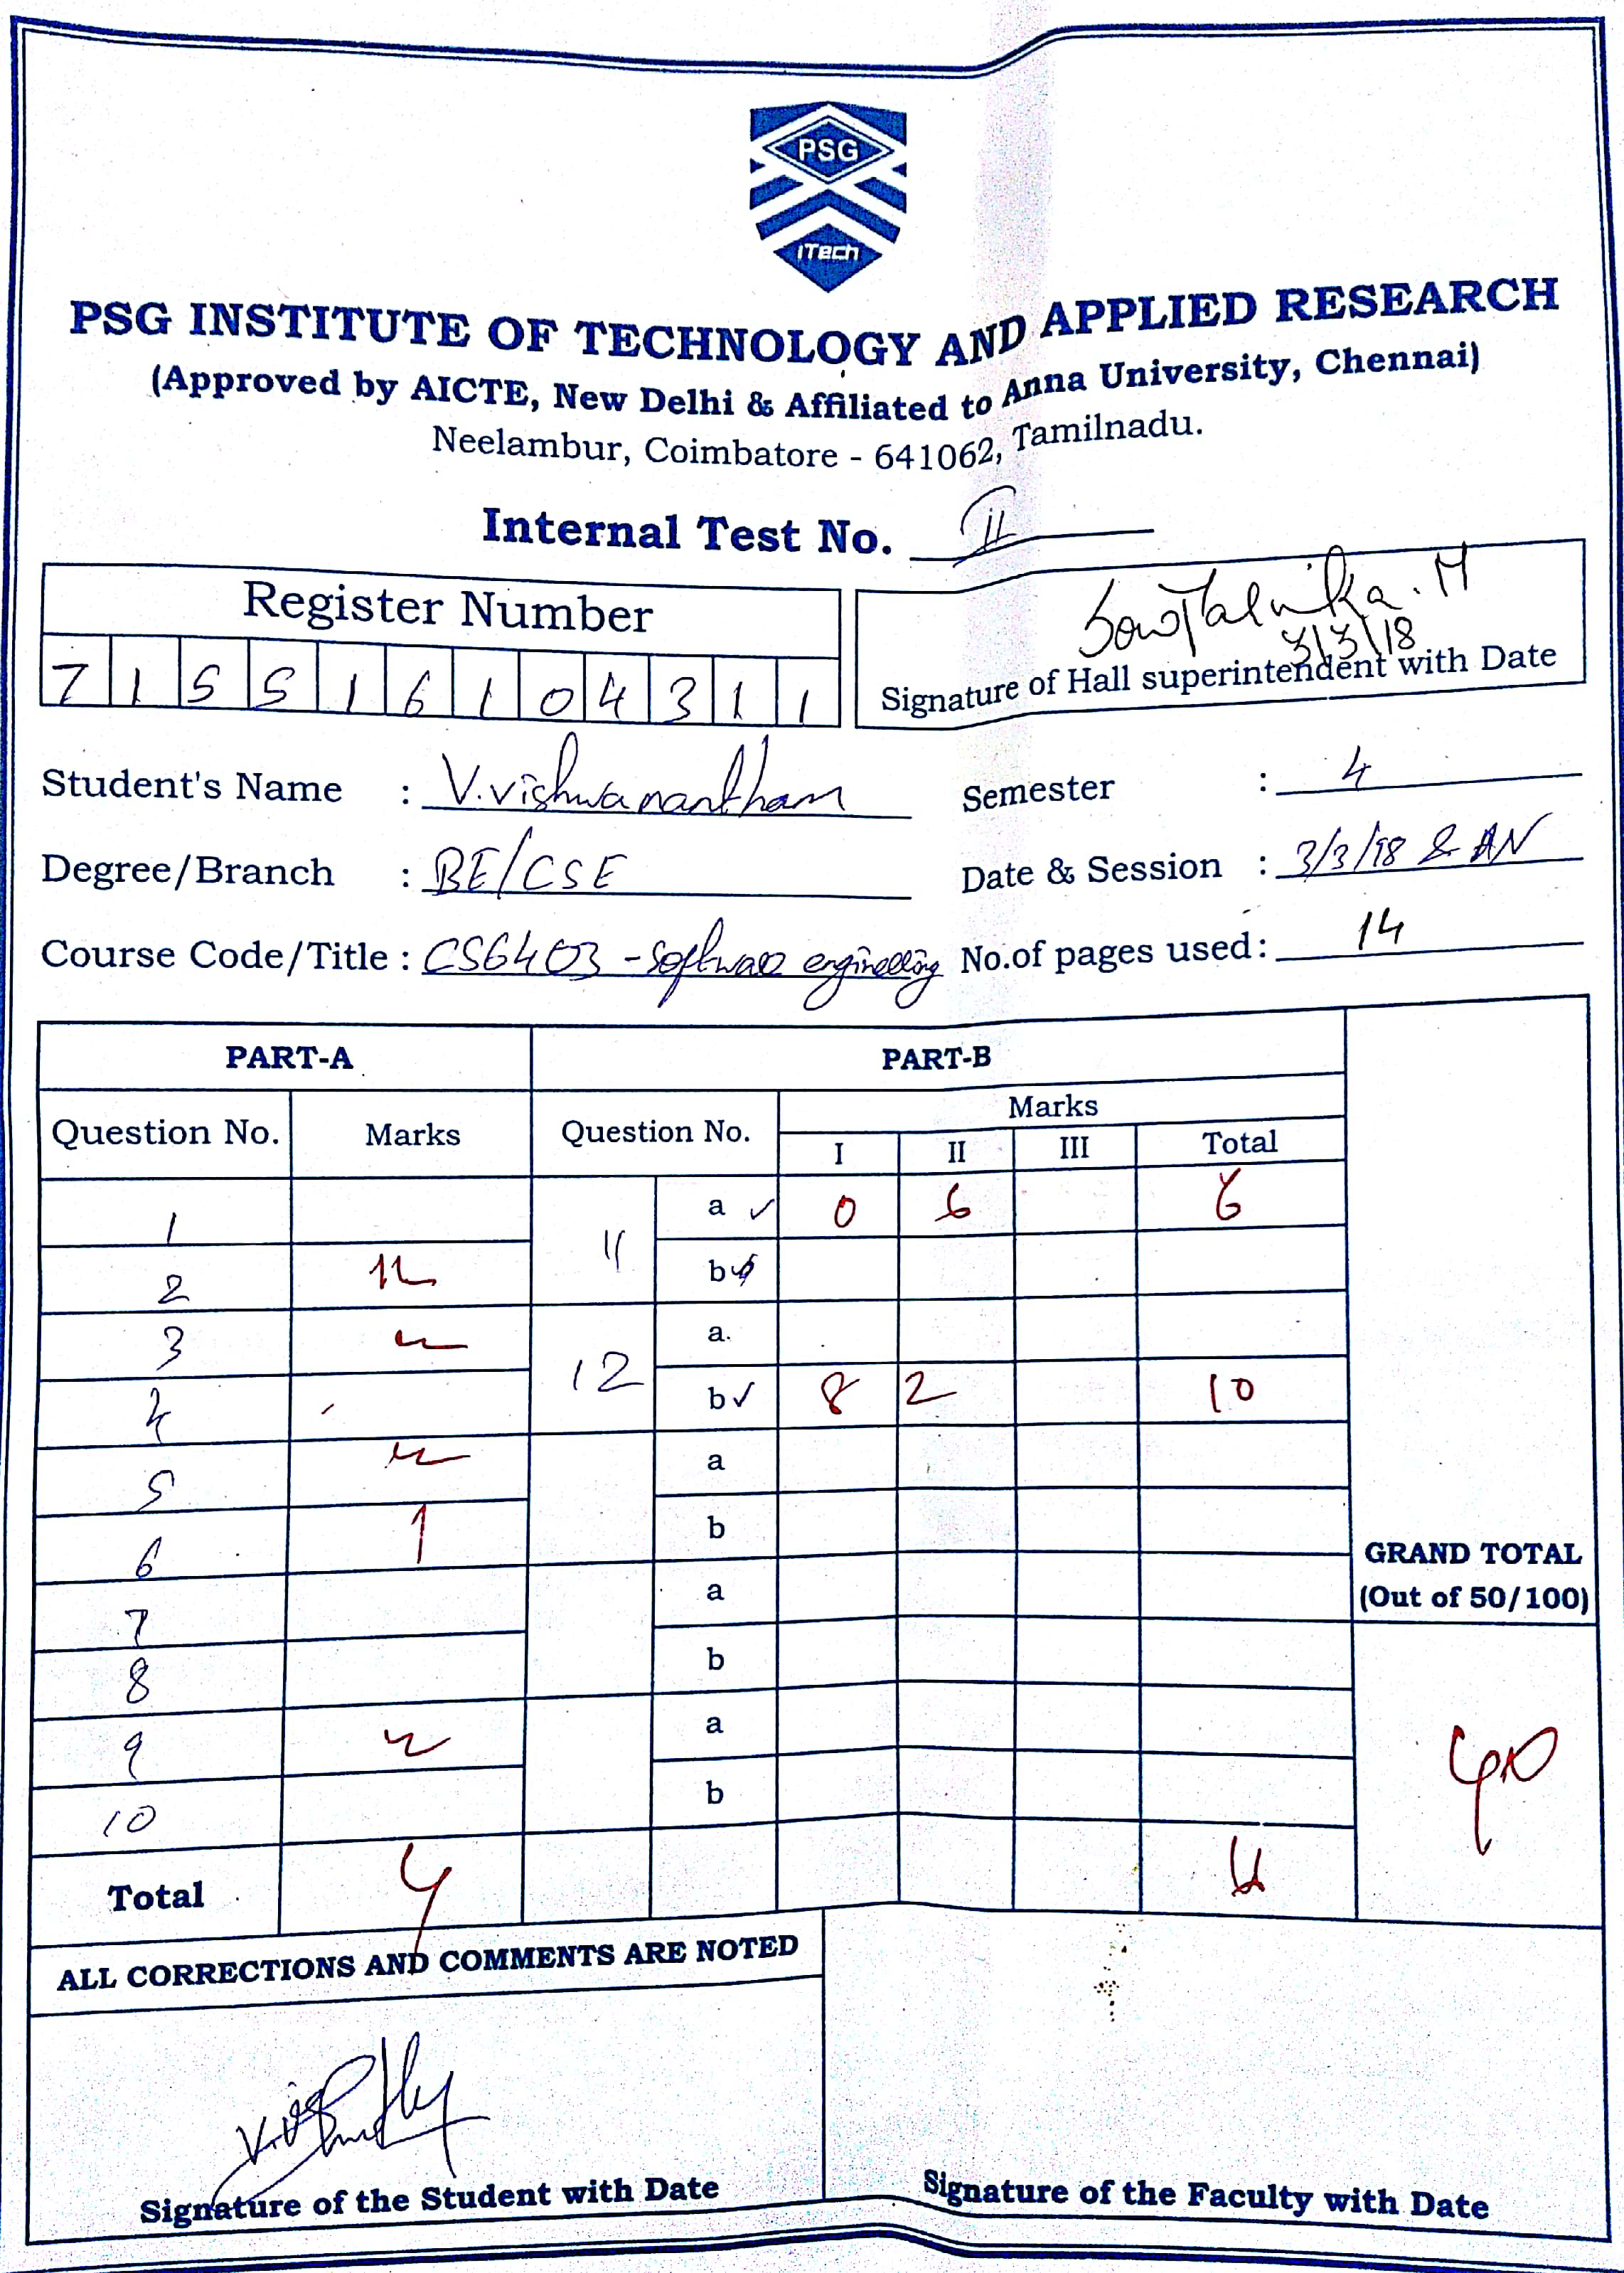 PSG
iTech
PSG INSTITUTE OF TECHNOLOGY AND APPLIED RESEARCH
(Approved by AICTE, New Delhi & Affiliated to Anna University, Chennai)
Neelambur, Coimbatore - 641062, Tamilnadu.
Internal Test No. II
Register Number
7 1 5 5 1 6 1 0 4 3 1 1
3/3/18
Signature of Hall superintendent with Date
Student's Name : V.vishwanantham
Semester : 4
Degree/Branch : BE/CSE
Date & Session : 3/3/18 & AN
Course Code/Title : CS6403 - Software engineering
No.of pages used: 14
PART-A PART-B
Question No. Marks Question No. Marks
I II III Total
1 11 a ✓ 0 6 6
2 b
3 12 a.
4 b ✓ 8 2 10
5 a
6 1 b
7 a
8 b
9 a
10 b
GRAND TOTAL
(Out of 50/100)
Total
ALL CORRECTIONS AND COMMENTS ARE NOTED
Signature of the Student with Date
Signature of the Faculty with Date